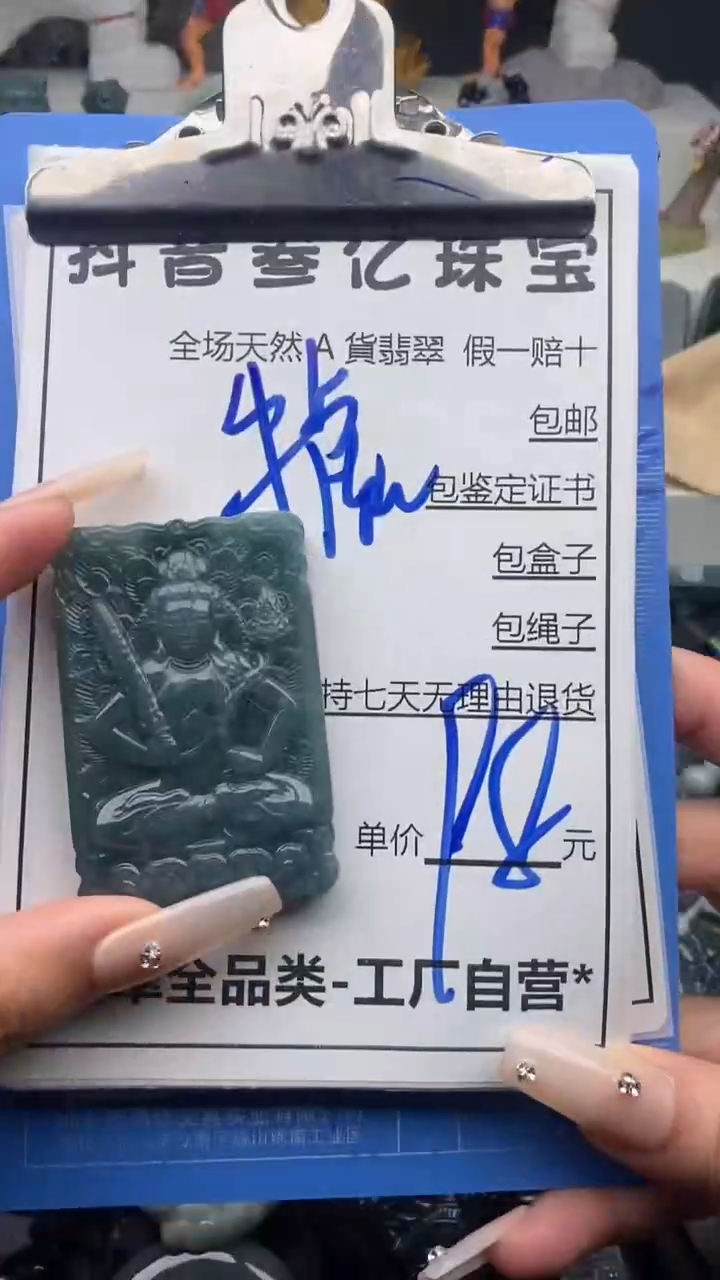 抖音叁亿珠宝
全场天然 A 貨翡翠 假一赔十
包邮
包鉴定证书
包盒子
包绳子
持七天无理由退货
单价 98 元
全品类-工厂自营*